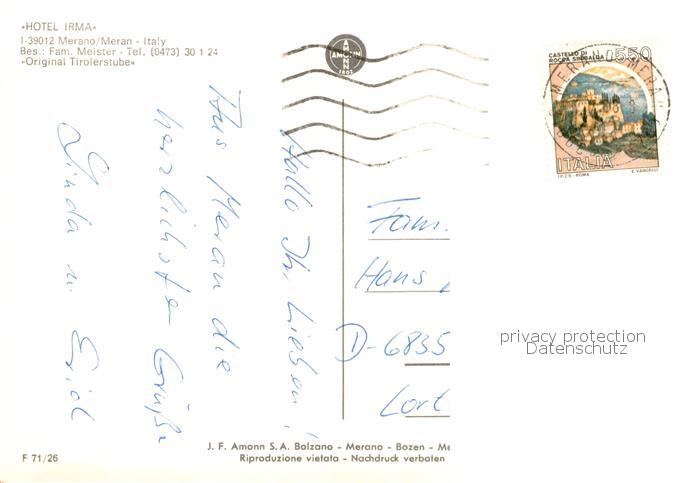 «HOTEL IRMA»
I-39012 Merano/Meran - Italy
Bes.: Fam. Meister - Tel. (0473) 30 1 24
«Original Tirolerstube«
AMONN
1802
CASTELLO DI
ROCCA SINIBALDA
550
ITALIA
I.P.Z.S. - ROMA
E. VANGELLI
Hallo Ihr Lieben!
Aus Meran die
herzlichste Grüße
Linda u.
Fam.
Hans
D-6835
privacy protection
Datenschutz
J. F. Amonn S.A. Bolzano - Merano - Bozen - Me
Riproduzione vietata - Nachdruck verboten
F 71/26